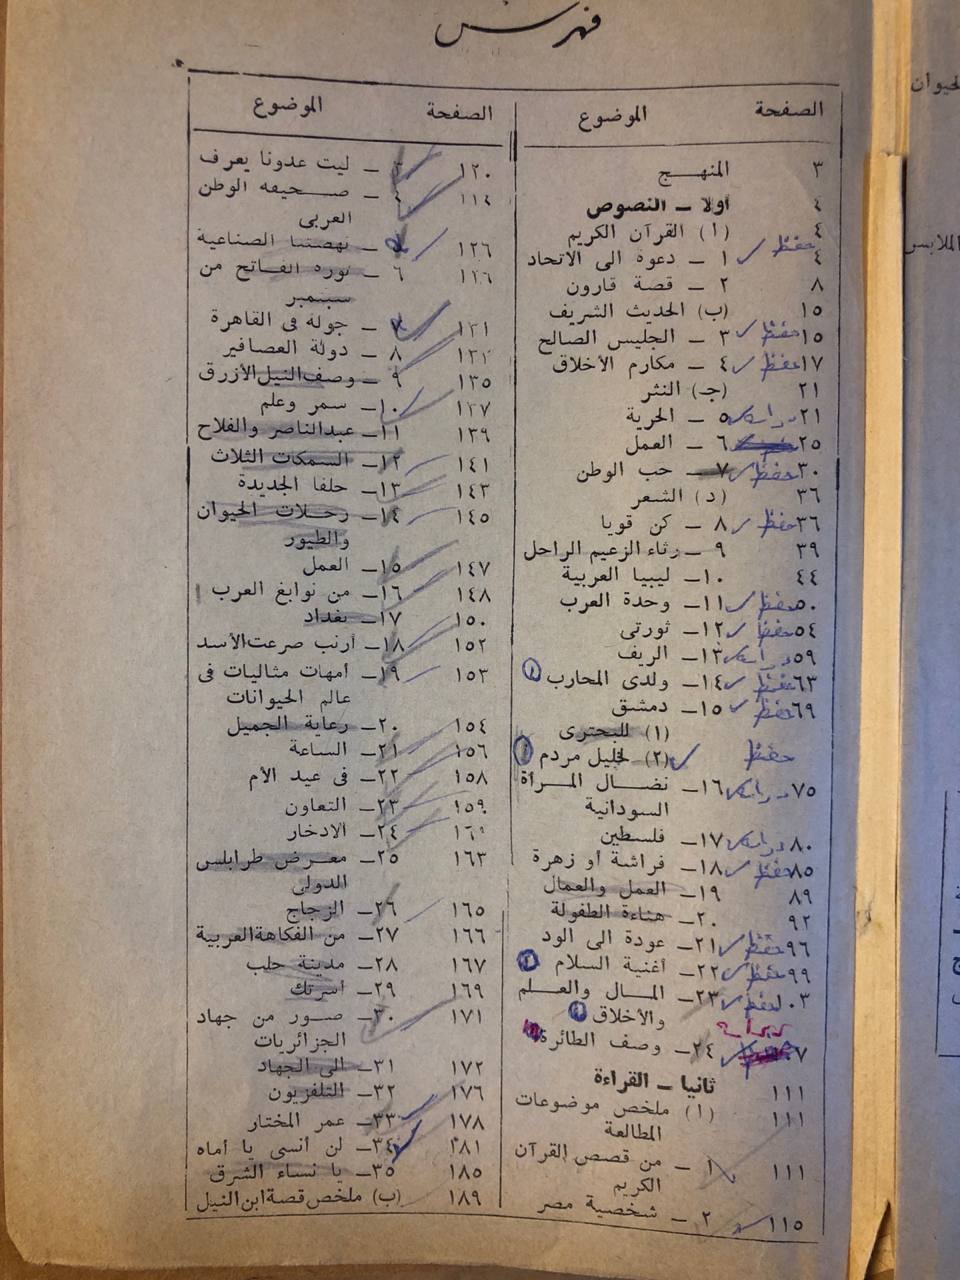 فهرس
الصفحة الموضوع
٣ المنهج
٤ أولا — النصوص
٤ (ا) القرآن الكريم
٤ حفظ ١ — دعوة الى الاتحاد
٨ ٢ — قصة قارون
١٥ (ب) الحديث الشريف
١٥ حفظ ٣ — الجليس الصالح
١٧ حفظ ٤ — مكارم الأخلاق
٢١ (جـ) النثر
٢١ دراسة ٥ — الحرية
٢٥ ٦ — العمل
٣٠ حفظ ٧ — حب الوطن
٣٦ (د) الشعر
٣٦ حفظ ٨ — كن قويا
٣٩ ٩ — رثاء الزعيم الراحل
٤٤ ١٠— ليبيا العربية
٥٠ حفظ ١١— وحدة العرب
٥٤ حفظ ١٢— ثورتى
٥٩ دراسة ١٣— الريف
٦٣ حفظ ١٤— ولدى المحارب
٦٩ حفظ ١٥— دمشق
(١) للبحترى
حفظ (٢) لخليل مردم
٧٥ دراسة ١٦— نضال المرأة
السودانية
٨٠ دراسة ١٧— فلسطين
٨٥ حفظ ١٨— فراشة أو زهرة
٨٩ ١٩— العمل والعمال
٩٢ ٢٠— هناءة الطفولة
٩٦ حفظ ٢١— عودة الى الود
٩٩ حفظ ٢٢— أغنية السلام
١٠٣ حفظ ٢٣— المال والعلم
والأخلاق
دراسة
٢٤— وصف الطائرة
١١١ ثانيا — القراءة
١١١ (ا) ملخص موضوعات
المطالعة
١١١ ١ — من قصص القرآن
الكريم
١١٥ ٢ — شخصية مصر
الصفحة الموضوع
١٢٠ ٣ — ليت عدونا يعرف
١١٤ ٤ — صحيفه الوطن
العربى
١٢٦ ٥ — نهضتنا الصناعية
١٢٦ ٦ — ثورة الفاتح من
سبتمبر
١٣١ ٧ — جولة فى القاهرة
١٣٢ ٨ — دولة العصافير
١٣٥ ٩ — وصف النيل الأزرق
١٣٧ ١٠— سمر وعلم
١٣٩ ١١— عبدالناصر والفلاح
١٤١ ١٢— السمكات الثلاث
١٤٣ ١٣— حلفا الجديدة
١٤٥ ١٤— رحلات الحيوان
والطيور
١٤٧ ١٥— العمل
١٤٨ ١٦— من نوابغ العرب
١٥٠ ١٧— بغداد
١٥٢ ١٨— أرنب صرعت الأسد
١٥٣ ١٩— أمهات مثاليات فى
عالم الحيوانات
١٥٤ ٢٠— رعاية الجميل
١٥٦ ٢١— الساعة
١٥٨ ٢٢— فى عيد الأم
١٥٩ ٢٣— التعاون
١٦٠ ٢٤— الادخار
١٦٣ ٢٥— معرض طرابلس
الدولى
١٦٥ ٢٦— الزجاج
١٦٦ ٢٧— من الفكاهة العربية
١٦٧ ٢٨— مدينة حلب
١٦٩ ٢٩— أسرتك
١٧١ ٣٠— صور من جهاد
الجزائريات
١٧٢ ٣١— الى الجهاد
١٧٦ ٣٢— التلفزيون
١٧٨ ٣٣— عمر المختار
١٨١ ٣٤— لن أنسى يا أماه
١٨٥ ٣٥— يا نساء الشرق
١٨٩ (ب) ملخص قصة ابن النيل
الملابس